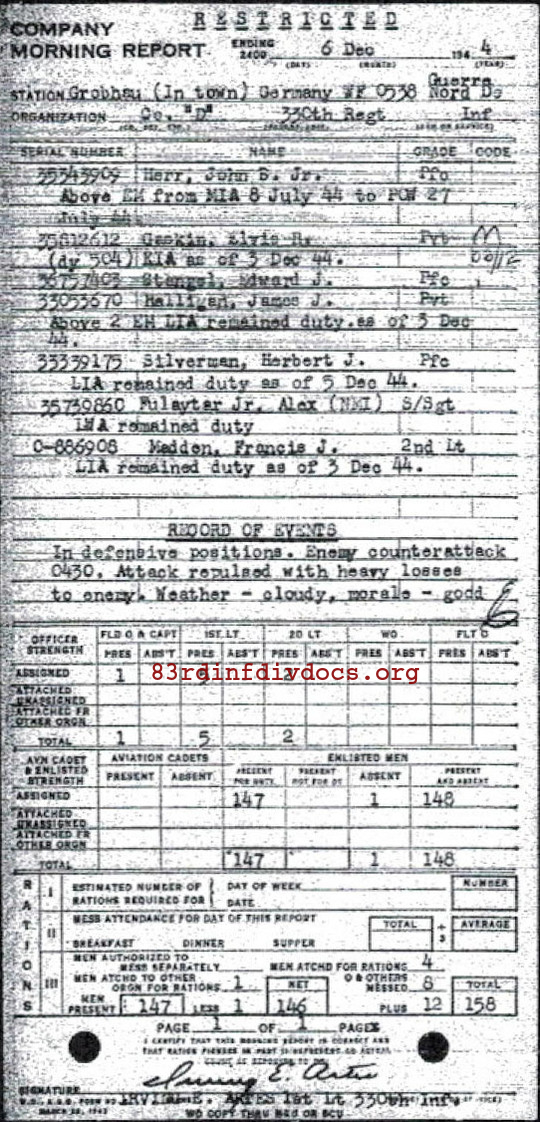 RESTRICTED
COMPANY
MORNING REPORT ENDING 2400 6 Dec 194 4
(DAY) (MONTH) (YEAR)
STATION Grobhau (In town) Germany WF 0538 Guerre Nord De
ORGANIZATION Co. "D" 330th Regt Inf
SERIAL NUMBER NAME GRADE CODE
35545909 Herr, John B. Jr. Pfc
Above EM from MIA 8 July 44 to POW 27
July 44
35812612 Gaskin, Elvis R. Pvt M
(dy 504) KIA as of 3 Dec 44.
35757403 Stangel, Edward J. Pfc
33053670 Halligan, James J. Pvt
Above 2 EM LIA remained duty.as of 3 Dec
44.
33339175 Silverman, Herbert J. Pfc
LIA remained duty as of 5 Dec 44.
35730860 Fulaytar Jr, Alex (NMI) S/Sgt
remained duty
O-886908 Madden, Francis J. 2nd Lt
LIA remained duty as of 3 Dec 44.
RECORD OF EVENTS
In defensive positions. Enemy counterattack
0430. Attack repulsed with heavy losses
to enemy. Weather - cloudy, morale - godd
OFFICER STRENGTH FLD O & CAPT 1ST LT 2D LT WO FLT O
PRES ABS'T PRES ABS'T PRES ABS'T PRES ABS'T PRES ABS'T
ASSIGNED 1 5 2
83rdinfdivdocs.org
ATTACHED UNASSIGNED
ATTACHED FR OTHER ORGN
TOTAL 1 5 2
AVN CADET & ENLISTED STRENGTH AVIATION CADETS ENLISTED MEN
PRESENT ABSENT PRESENT FOR DUTY PRESENT NOT FOR DY ABSENT PRESENT AND ABSENT
ASSIGNED 147 1 148
ATTACHED UNASSIGNED
ATTACHED FR OTHER ORGN
TOTAL 147 1 148
RATIONS
I ESTIMATED NUMBER OF RATIONS REQUIRED FOR DAY OF WEEK DATE NUMBER
II MESS ATTENDANCE FOR DAY OF THIS REPORT TOTAL ÷ 3 AVERAGE
BREAKFAST DINNER SUPPER
III MEN AUTHORIZED TO MESS SEPARATELY MEN ATCHD FOR RATIONS 4
MEN ATCHD TO OTHER ORGN FOR RATIONS 1 NET O & OTHERS MESSED 8 TOTAL
MEN PRESENT 147 LESS 1 146 PLUS 12 158
PAGE 1 OF 1 PAGES
I CERTIFY THAT THIS MORNING REPORT IS CORRECT AND
Irving E. Artes
SIGNATURE
IRVING E. ARTES 1st Lt 330th Inf.
MARCH 23, 1943